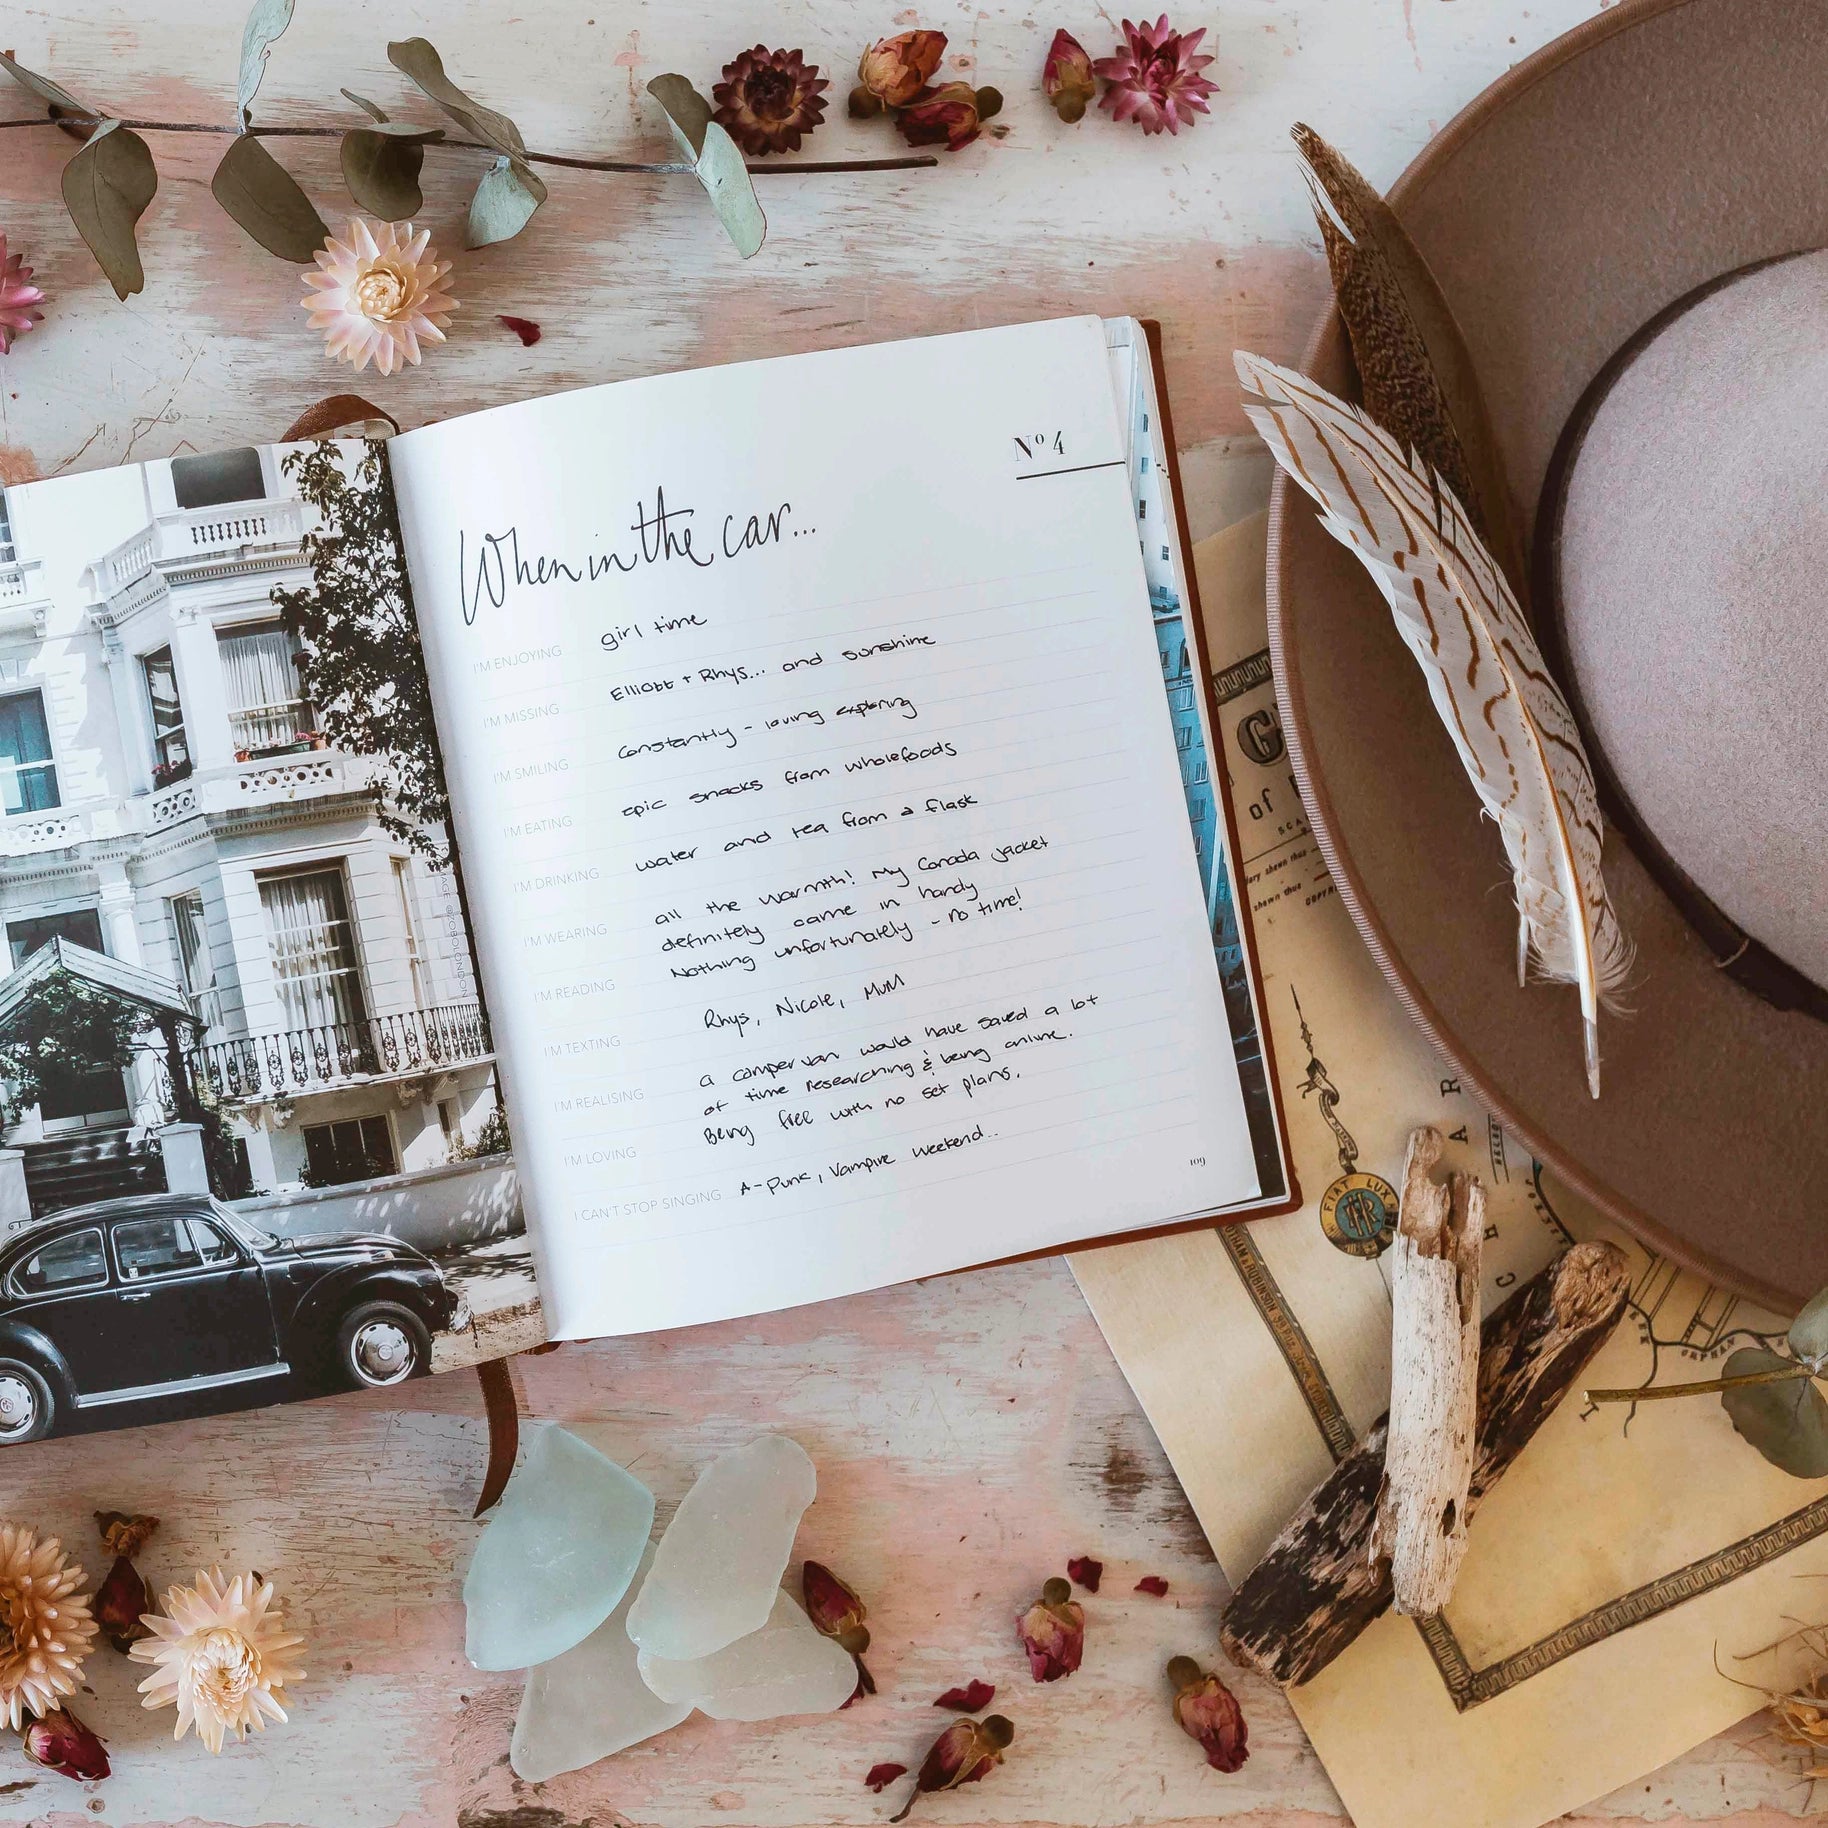 Nº 4
When in the car...
I'M ENJOYING girl time
I'M MISSING Elliott + Rhys... and sunshine
I'M SMILING Constantly - loving exploring
I'M EATING epic snacks from wholefoods
I'M DRINKING water and tea from a flask
I'M WEARING all the warmth! My Canada jacket
definitely came in handy
I'M READING Nothing unfortunately - no time!
I'M TEXTING Rhys, Nicole, MUM
I'M REALISING a camper van would have saved a lot
of time researching & being online.
I'M LOVING Being free with no set plans.
I CAN'T STOP SINGING A-Punk, Vampire Weekend..
109
IMAGE @GOBOLONDON
of
shown thus
FIAT LUX